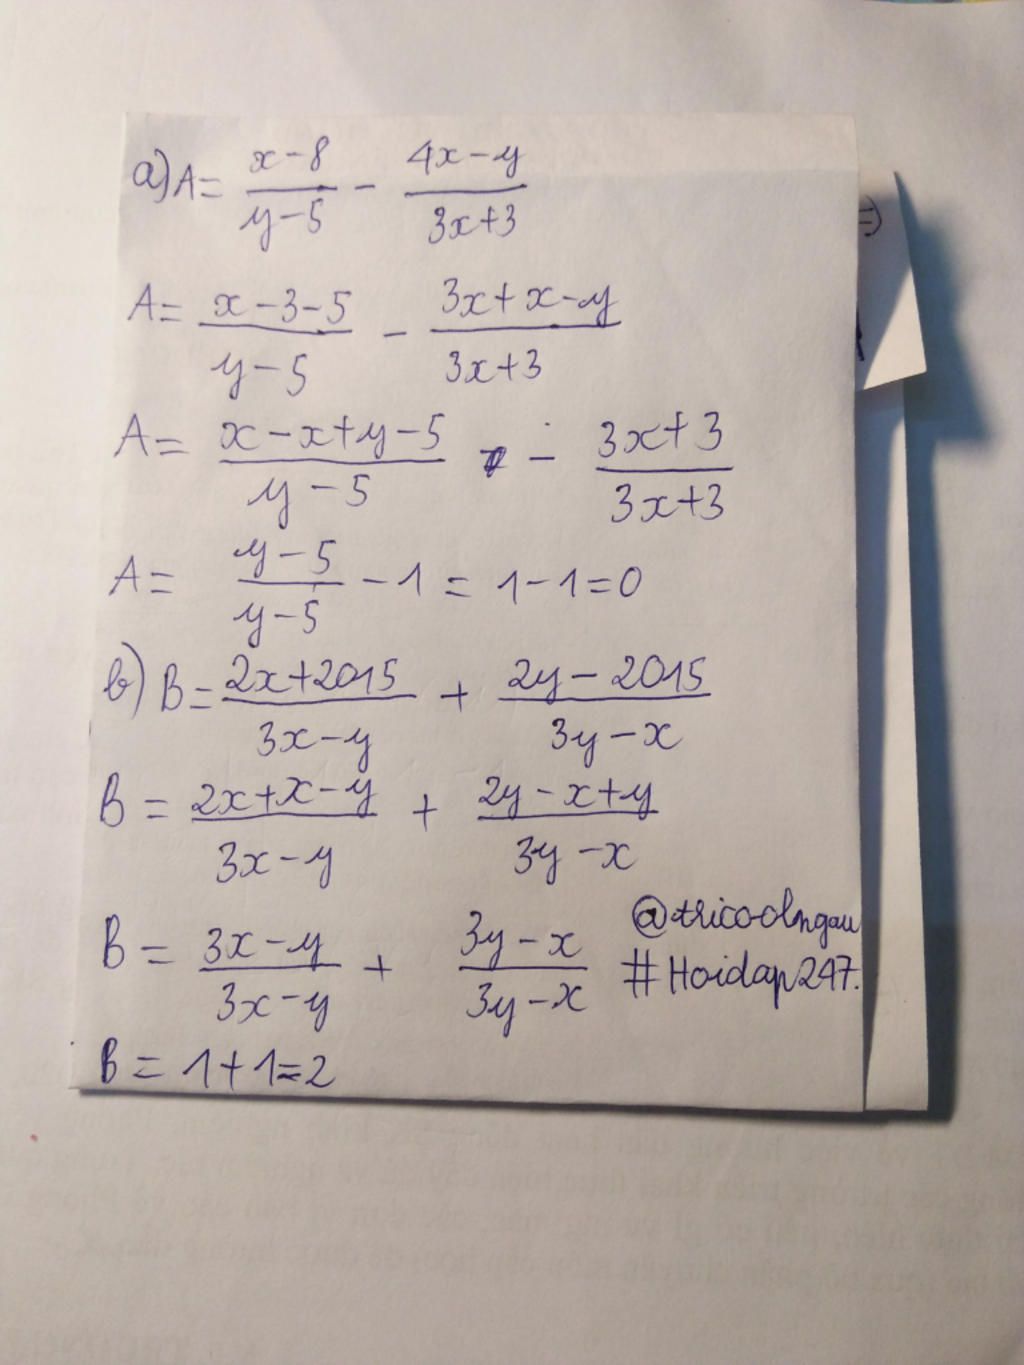 a) A = (x-8)/(y-5) - (4x-y)/(3x+3)
A = (x-3-5)/(y-5) - (3x+x-y)/(3x+3)
A = (x-x+y-5)/(y-5) - (3x+3)/(3x+3)
A = (y-5)/(y-5) - 1 = 1-1=0
b) B = (2x+2015)/(3x-y) + (2y-2015)/(3y-x)
B = (2x+x-y)/(3x-y) + (2y-x+y)/(3y-x)
B = (3x-y)/(3x-y) + (3y-x)/(3y-x)
@tricoolngau
#Hoidap247.
B = 1+1=2